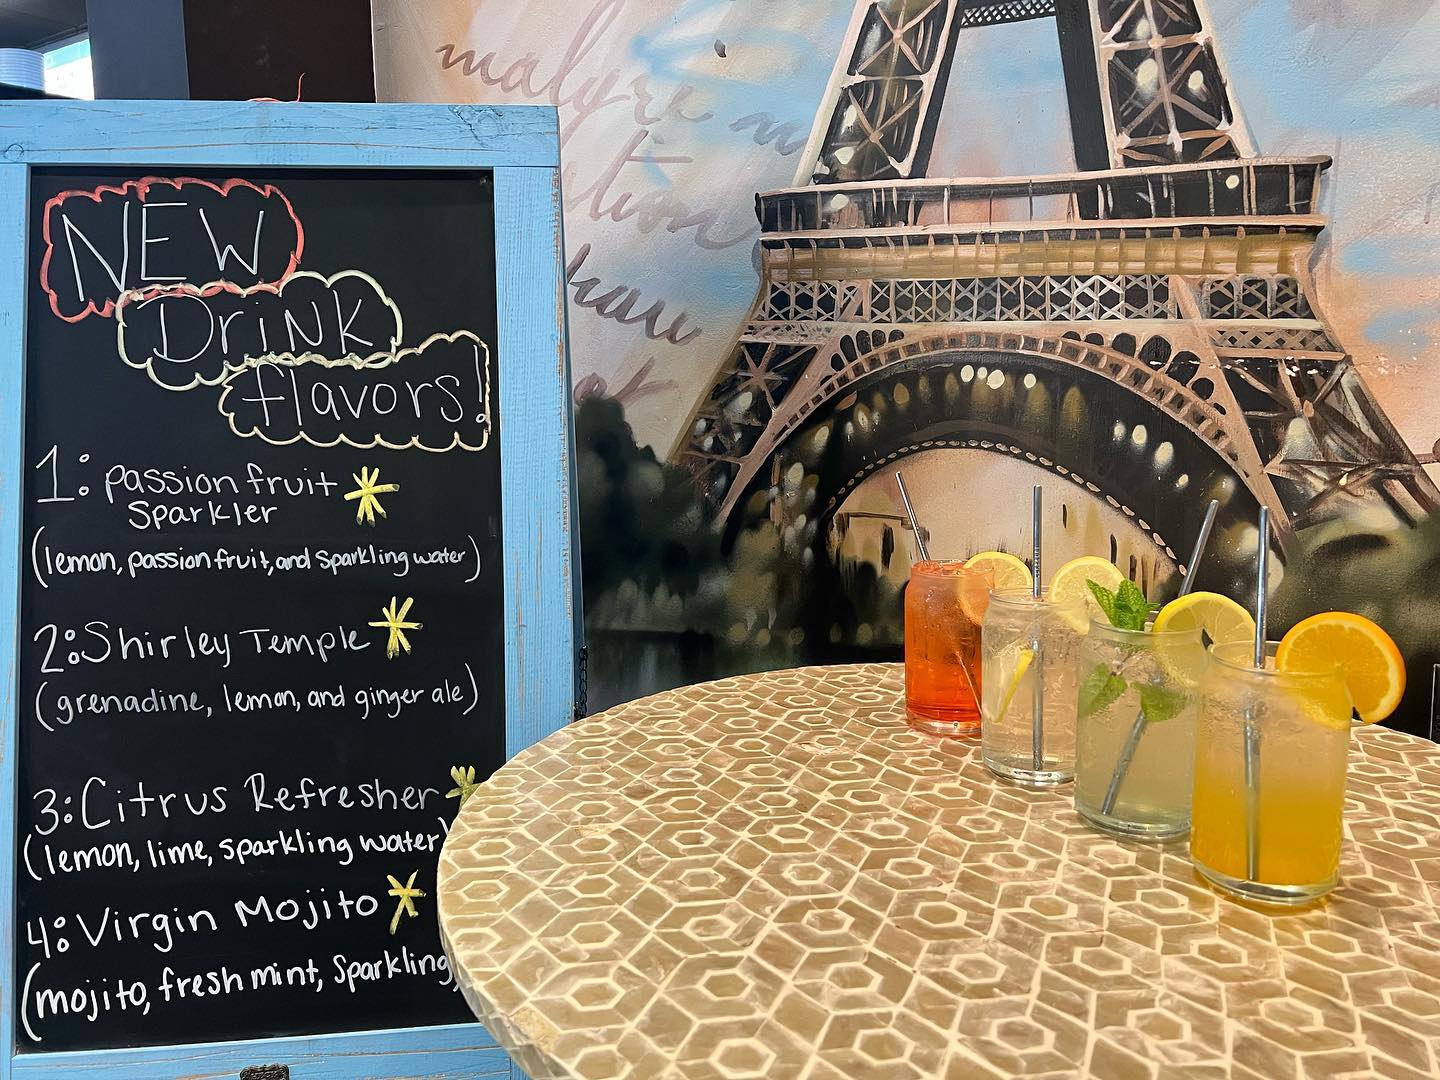 NEW
Drink
flavors!
1: passion fruit
Sparkler
(lemon, passion fruit, and sparkling water)
2: Shirley Temple
(grenadine, lemon, and ginger ale)
3: Citrus Refresher
(lemon, lime, sparkling water)
4: Virgin Mojito
(mojito, fresh mint, Sparkling,
malgré